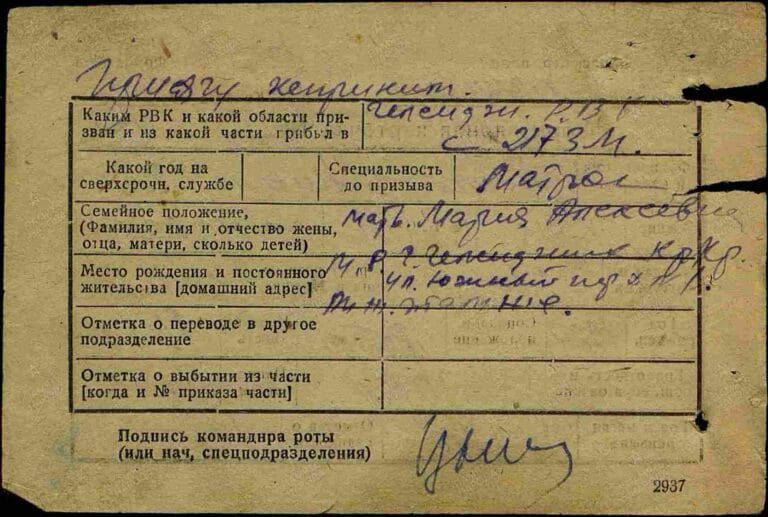 Присягу непринят.
Каким РВК и какой области при-
зван и из какой части прибыл в
Геленджи. РВК
с 217 ЗМ.
Какой год на
сверхсрочн. службе
Специальность
до призыва
Матрос
Семейное положение,
(Фамилия, имя и отчество жены,
отца, матери, сколько детей)
мать. Мария Алексевна
Место рождения и постоянного
жительства [домашний адрес]
М.р. г. Геленджик Кр Кр.
ул. Южный
Отметка о переводе в другое
подразделение
Отметка о выбытии из части
[когда и № приказа части]
Подпись командира роты
(или нач, спецподразделения)
2937